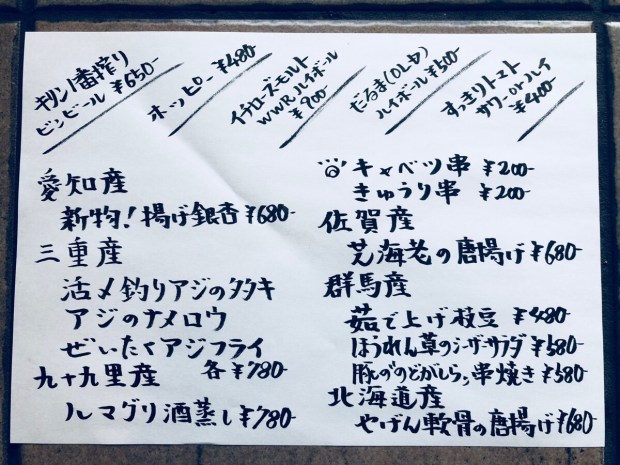 キリン1番搾り
ビンビール ¥650-
ホッピー ¥480
イチローズモルト
WWRハイボール
¥900
だるま(OLD)
ハイボール ¥500-
すっきりトマト
サワーorハイ
¥400-
愛知産
新物!揚げ銀杏 ¥680-
三重産
活〆釣りアジのタタキ
アジのナメロウ
ぜいたくアジフライ
各¥780-
九十九里産
ハマグリ酒蒸し ¥780-
キャベツ串 ¥200-
きゅうり串 ¥200-
佐賀産
芝海老の唐揚げ ¥680-
群馬産
茹で上げ枝豆 ¥480-
ほうれん草のシーザーサラダ ¥580-
豚ののどがしら,串焼き ¥580
北海道産
やげん軟骨の唐揚げ ¥680